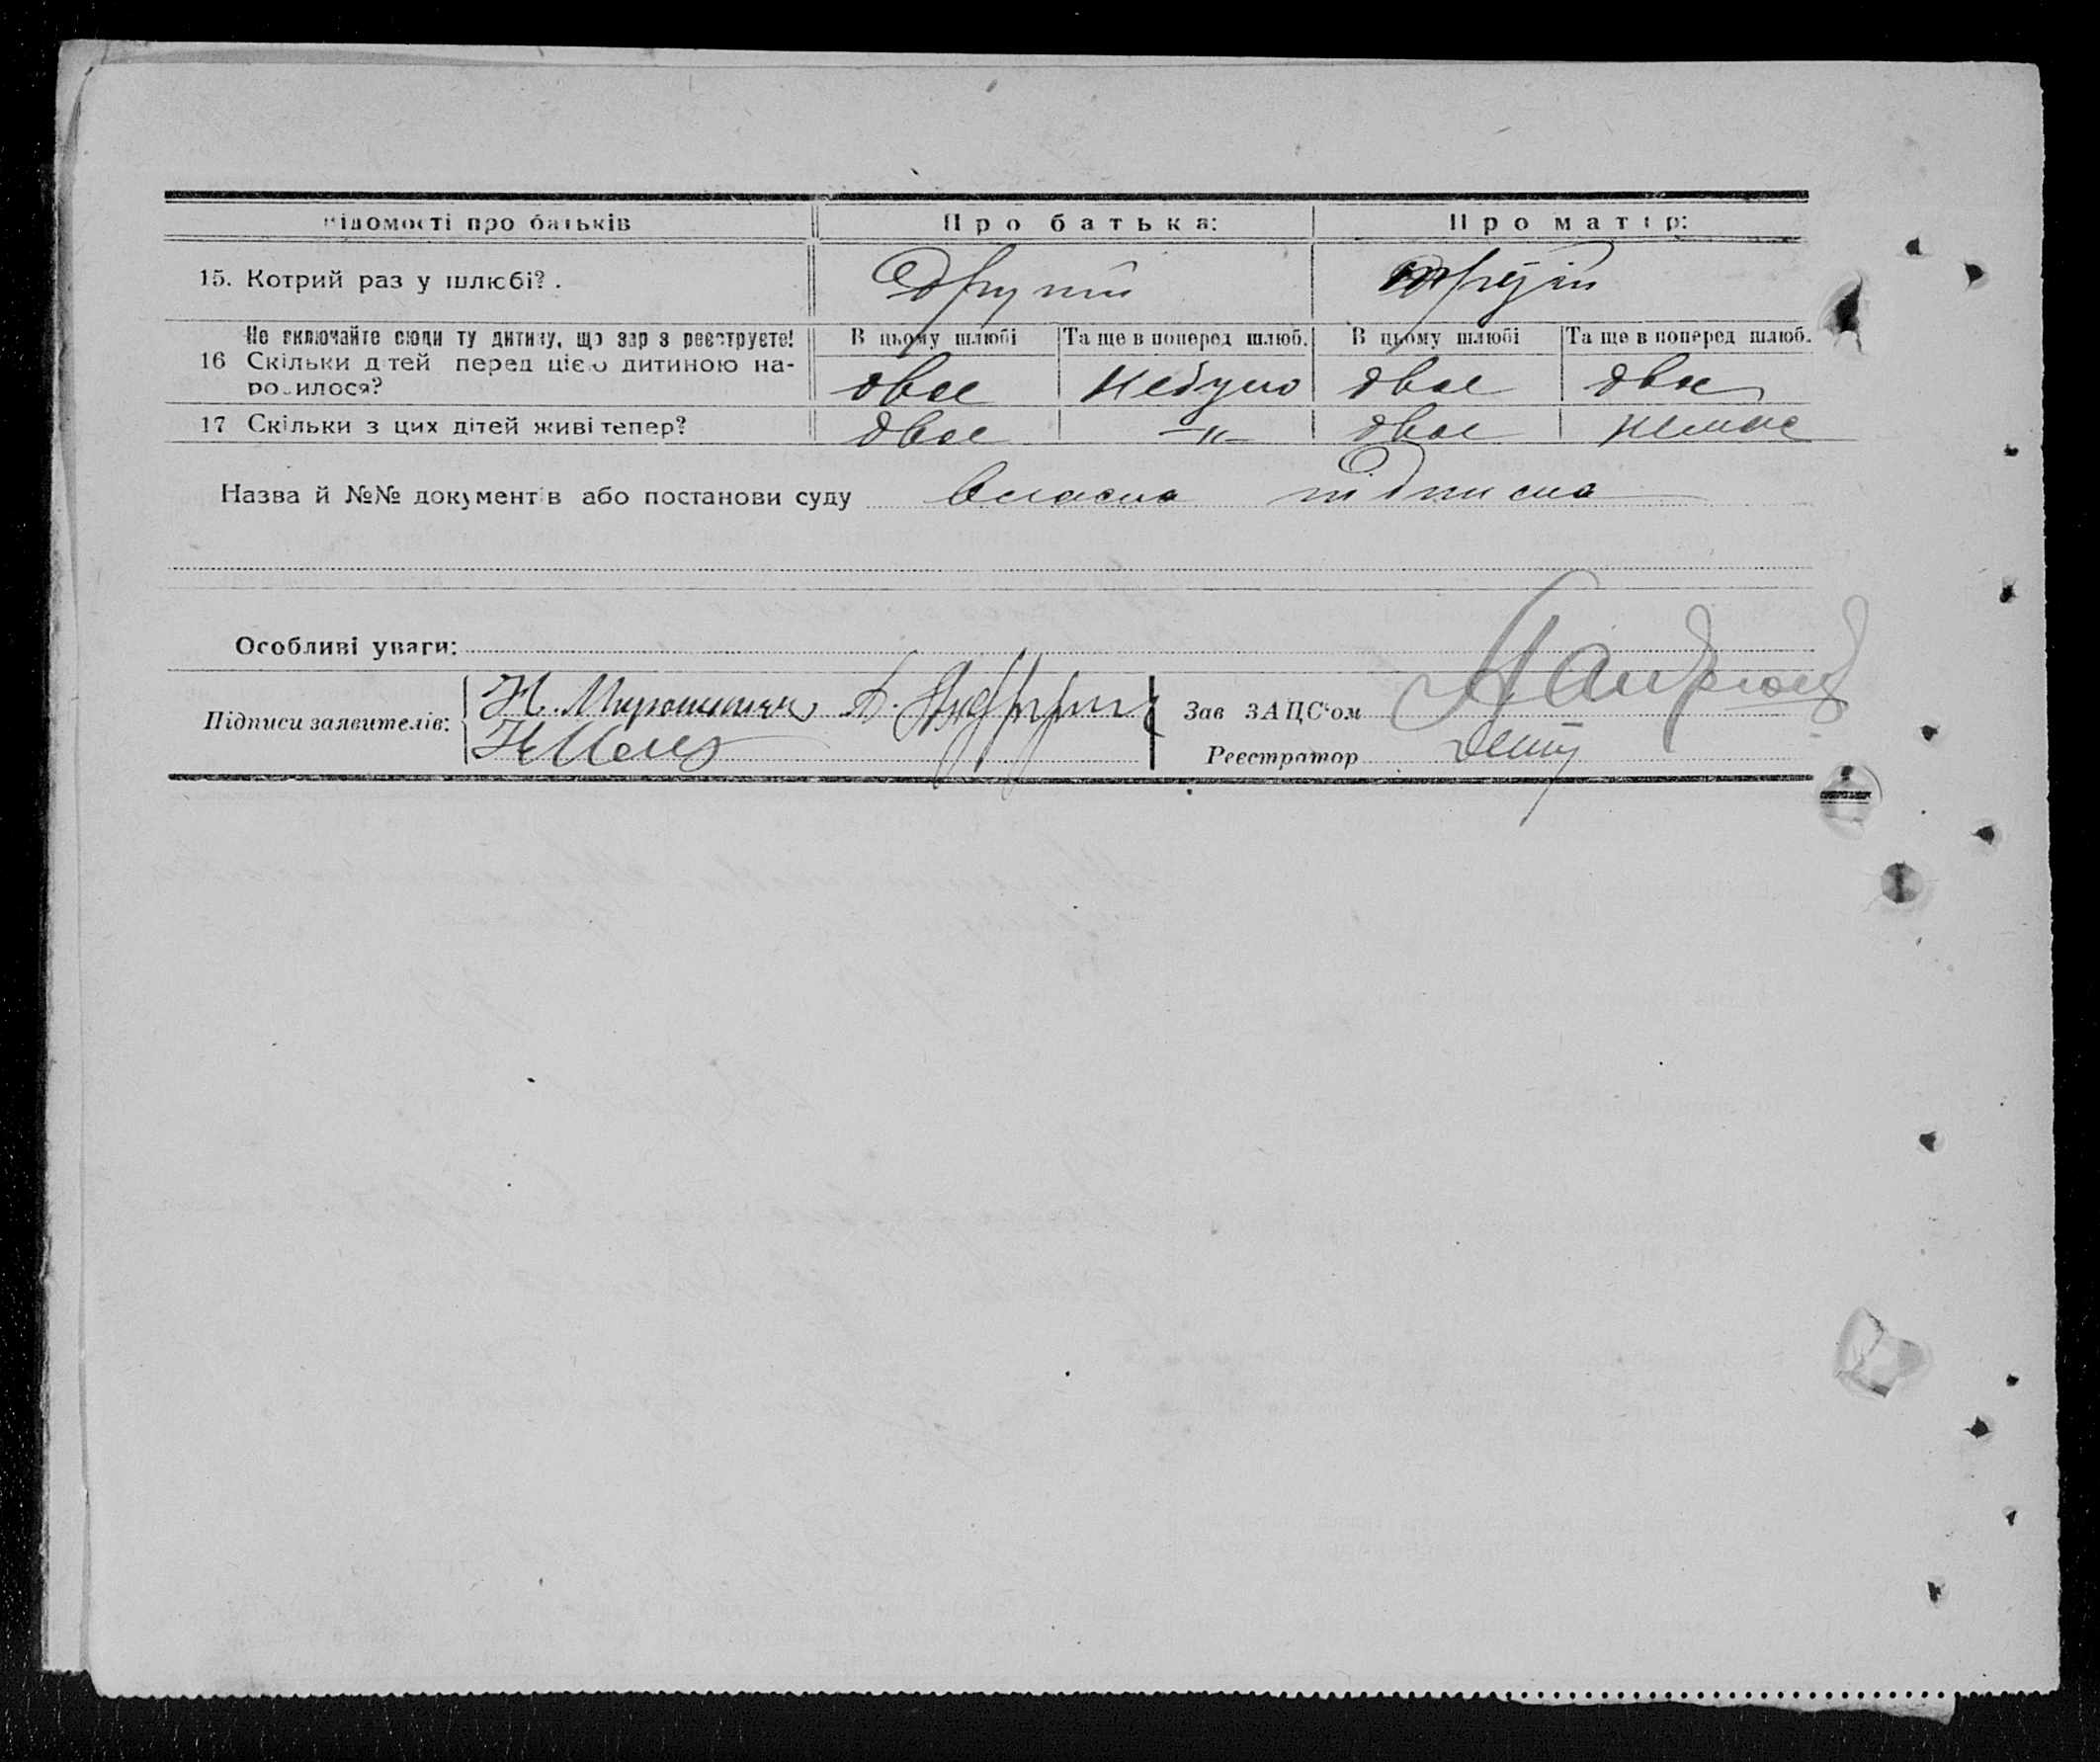 Відомості про батьків Про батька: Про матір:
15. Котрий раз у шлюбі?. Другий третій
Не включайте сюди ту дитину, що зараз реєструєте! В цьому шлюбі Та ще в поперед шлюб. В цьому шлюбі Та ще в поперед шлюб.
16 Скільки дітей перед цією дитиною на-
родилося? двое небуло двое двое
17 Скільки з цих дітей живі тепер? двое —"— двое немае
Назва й №№ документів або постанови суду власна підписка
Особливі уваги:
Підписи заявителів: Н. Мирошник
Зав ЗАЦС'ом
Реєстратор